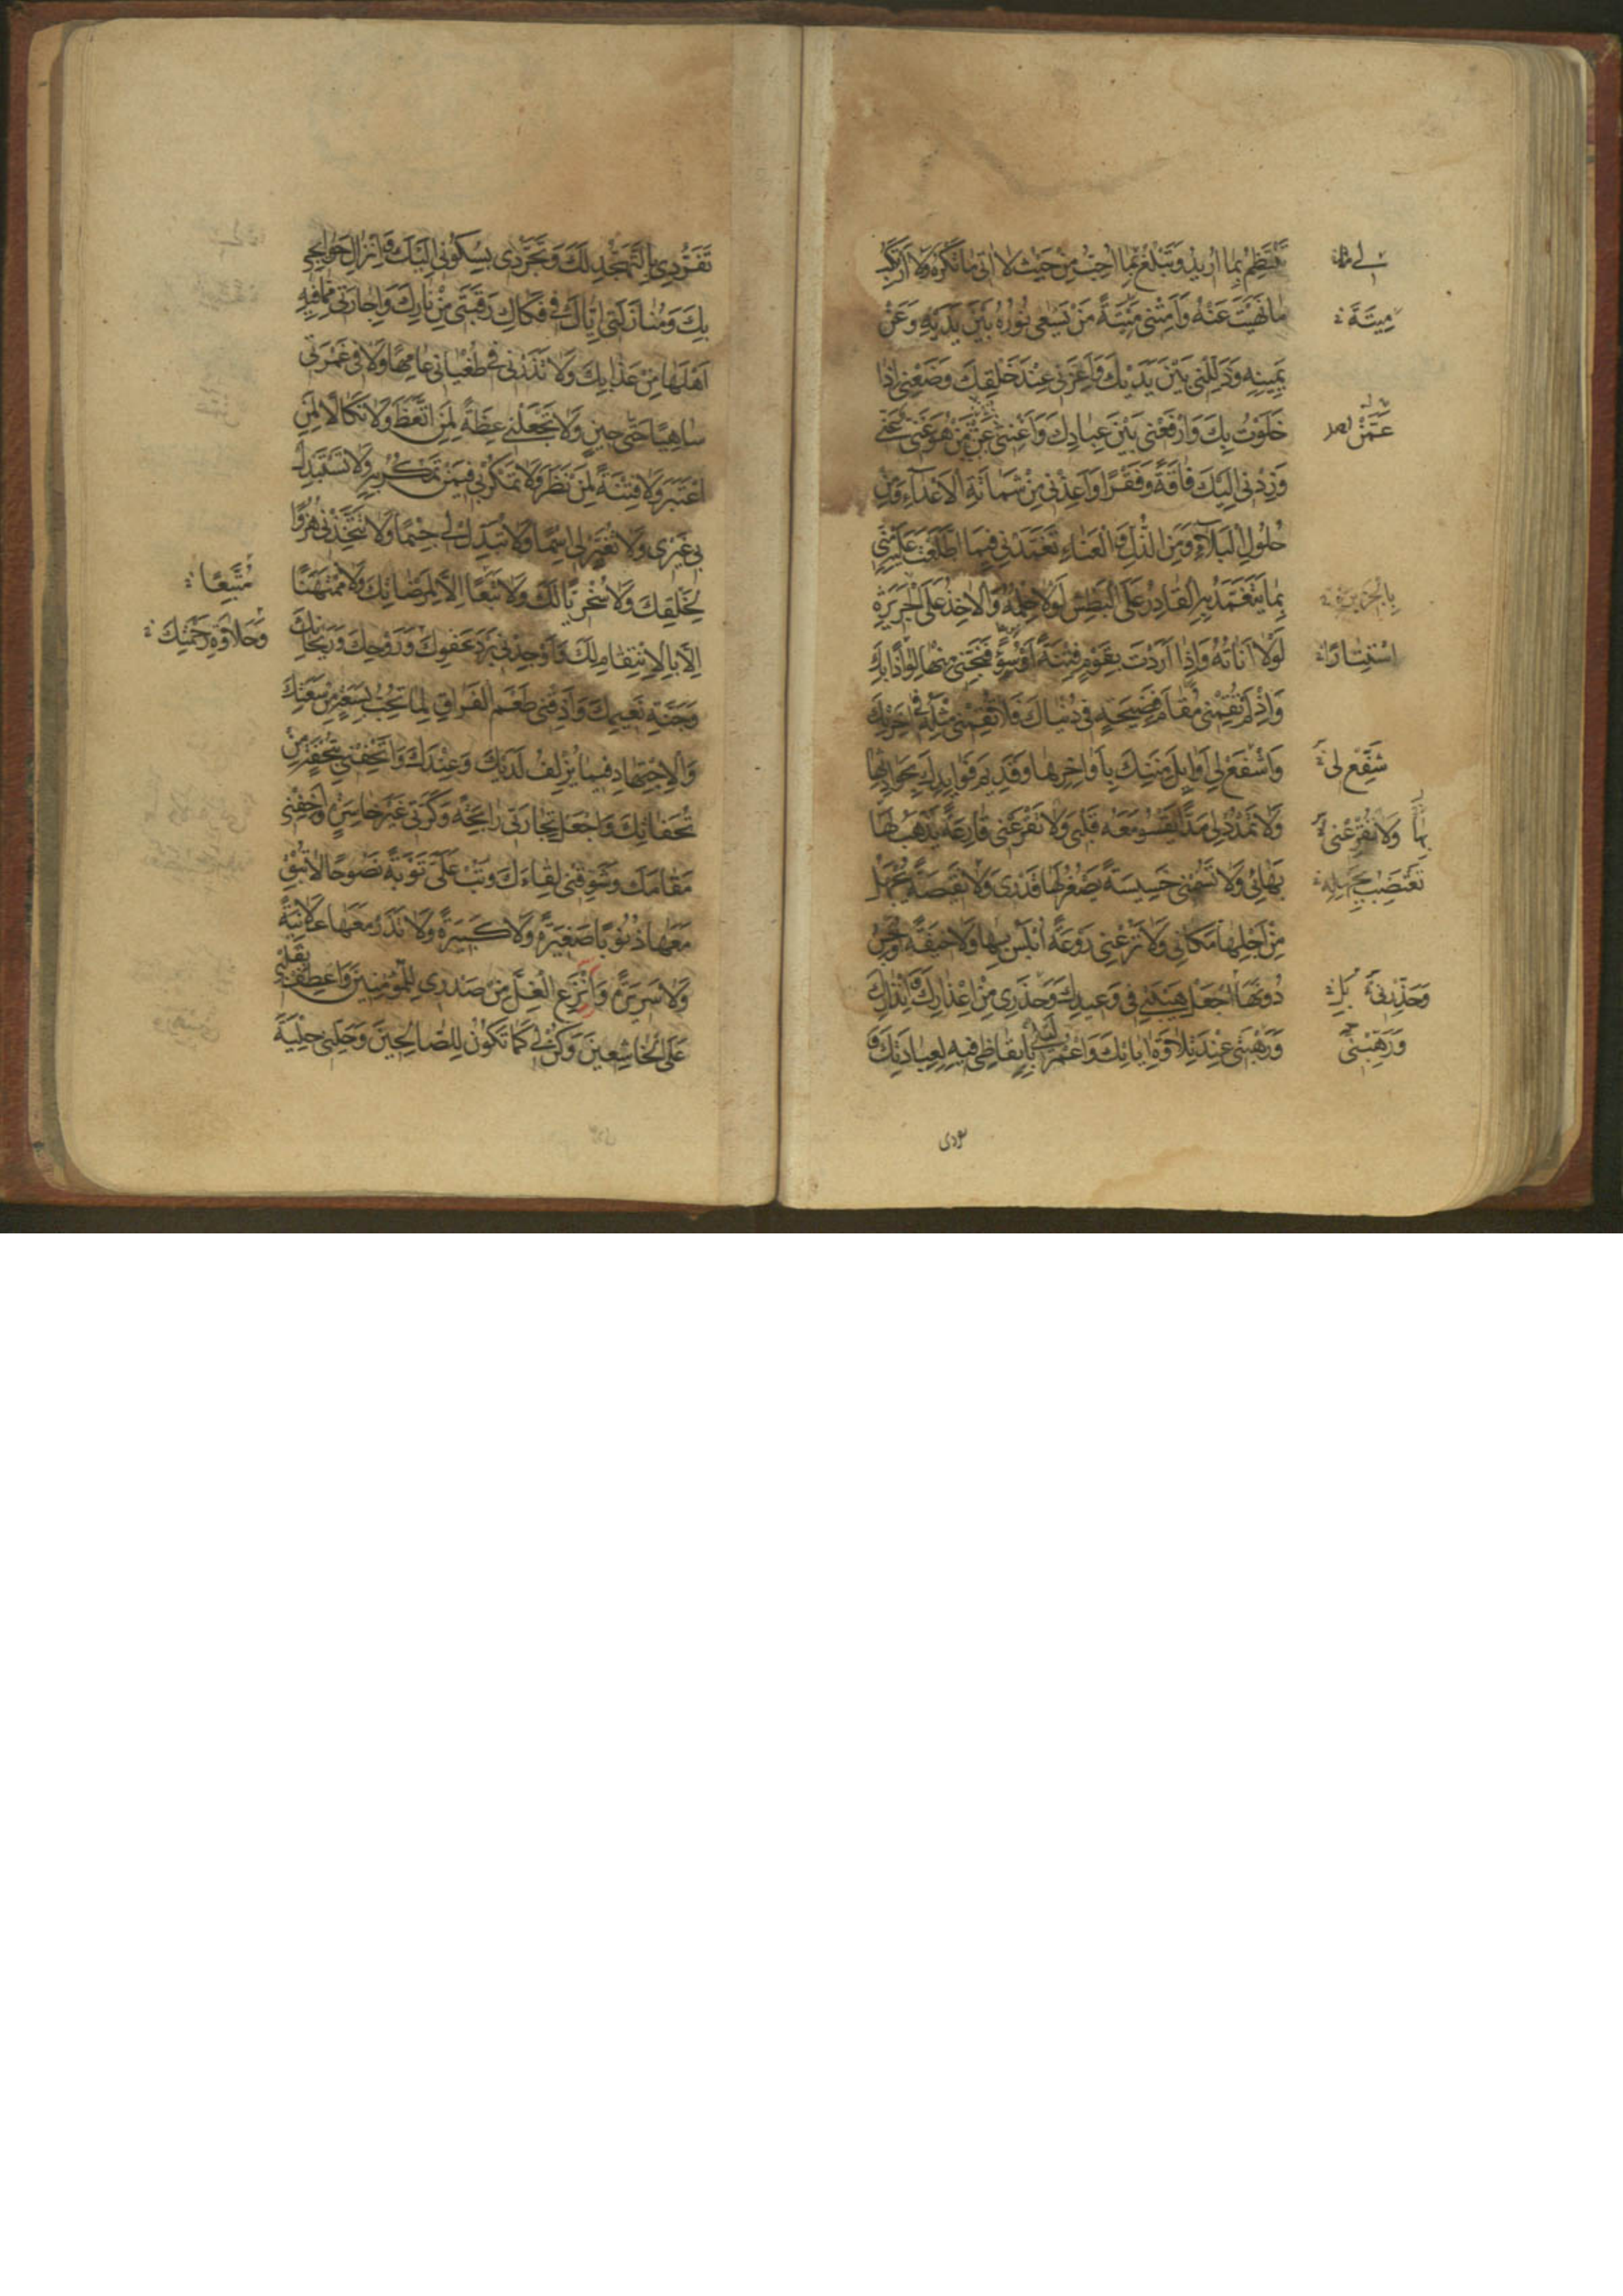 تَنْتَظِمُ بِمَا اُرِيدُ وَتَبْلُغُ بِمَا اُحِبُّ مِنْ حَيْثُ لَا اٰتِي مَا تَكْرَهُ وَلَا اَرْتَكِبُ
مَا نَهَيْتَ عَنْهُ وَاَمِتْنِي مَيْتَةَ مَنْ يَسْعٰى نُورُهُ بَيْنَ يَدَيْهِ وَعَنْ
يَمِينِهِ وَذَلِّلْنِي بَيْنَ يَدَيْكَ وَاَعِزَّنِي عِنْدَ خَلْقِكَ وَضَعْنِي اِذَا
خَلَوْتُ بِكَ وَارْفَعْنِي بَيْنَ عِبَادِكَ وَاَغْنِنِي عَنْ مَنْ هُوَ غَنِيٌّ عَنِّي
وَزِدْنِي اِلَيْكَ فَاقَةً وَفَقْرًا وَاَعِذْنِي مِنْ شَمَاتَةِ الْاَعْدَاءِ وَمِنْ
حُلُولِ الْبَلَاءِ وَمِنَ الذُّلِّ وَالْعَنَاءِ تَغَمَّدْنِي فِيمَا اطَّلَعْتَ عَلَيْهِ مِنِّي
بِمَا يَتَغَمَّدُ بِهِ الْقَادِرُ عَلَى الْبَطْشِ لَوْلَا حِلْمُهُ وَالْاٰخِذُ عَلَى الْجَرِيرَةِ
لَوْلَا اَنَاتُهُ وَاِذَا اَرَدْتَ بِقَوْمٍ فِتْنَةً اَوْ سُوءً فَنَجِّنِي مِنْهَا لِوَاذًا بِكَ
وَاِذْ لَمْ تُقِمْنِي مَقَامَ فَضِيحَةٍ فِي دُنْيَاكَ فَلَا تُقِمْنِي مِثْلَهُ فِي اٰخِرَتِكَ
وَاشْفَعْ لِي اَوَائِلَ مِنَنِكَ بِاَوَاخِرِهَا وَقَدِيمَ فَوَائِدِكَ بِحَوَادِثِهَا
وَلَا تَمْدُدْ لِي مَدًّا يَقْسُو مَعَهُ قَلْبِي وَلَا تَقْرَعْنِي قَارِعَةً يَذْهَبُ لَهَا
بَهَائِي وَلَا تَسُمْنِي خَسِيسَةً يَصْغُرُ لَهَا قَدْرِي وَلَا نَقِيصَةً يُجْهَلُ
مِنْ اَجْلِهَا مَكَانِي وَلَا تَرُعْنِي رَوْعَةً اُبْلِسُ بِهَا وَلَا خِيفَةً اُوجِسُ
دُونَهَا اجْعَلْ هَيْبَتِي فِي وَعِيدِكَ وَحَذَرِي مِنْ اِعْذَارِكَ وَاِنْذَارِكَ
وَرَهْبَتِي عِنْدَ تِلَاوَةِ اٰيَاتِكَ وَاعْمُرْ لَيْلِي بِاِيقَاظِي فِيهِ لِعِبَادَتِكَ وَ
مِيتَةَ
عَمَّنْ
اسْتِتَارًا
شَفِّعْ لِي
بِهَا وَلَا تُقْرِعْنِي
وَرَهِّبْنِي
تَفَرُّدِي بِالتَّهَجُّدِ لَكَ وَتَجَرُّدِي بِسُكُونِي اِلَيْكَ وَاِنْزَالِ حَوَائِجِي
بِكَ وَمُنَازَلَتِي اِيَّاكَ فِي فَكَاكِ رَقَبَتِي مِنْ نَارِكَ وَاِجَارَتِي مِمَّا فِيهِ
اَهْلُهَا مِنْ عَذَابِكَ وَلَا تَذَرْنِي فِي طُغْيَانِي عَامِهًا وَلَا فِي غَمْرَتِي
سَاهِيًا حَتّٰى حِينٍ وَلَا تَجْعَلْنِي عِظَةً لِمَنِ اتَّعَظَ وَلَا نَكَالًا لِمَنِ
اعْتَبَرَ وَلَا فِتْنَةً لِمَنْ نَظَرَ وَلَا تَمْكُرْ بِي فِيمَنْ تَمْكُرُ بِهِ وَلَا تَسْتَبْدِلْ
بِي غَيْرِي وَلَا تُغَيِّرْ لِي اسْمًا وَلَا تُبَدِّلْ لِي جِسْمًا وَلَا تَتَّخِذْنِي هُزُوًا
لِخَلْقِكَ وَلَا سُخْرِيًّا لَكَ وَلَا تَبَعًا اِلَّا لِمَرْضَاتِكَ وَلَا مُمْتَهَنًا
اِلَّا بِالْاِنْتِقَامِ لَكَ وَاَوْجِدْنِي بَرْدَ عَفْوِكَ وَرَوْحِكَ وَرَيْحَانِكَ
وَجَنَّةِ نَعِيمِكَ وَاَذِقْنِي طَعْمَ الْفَرَاغِ لِمَا تُحِبُّ بِسَعَةٍ مِنْ سَعَتِكَ
وَالْاِجْتِهَادِ فِيمَا يُزْلِفُ لَدَيْكَ وَعِنْدَكَ وَاَتْحِفْنِي بِتُحْفَةٍ مِنْ
تُحَفَاتِكَ وَاجْعَلْ تِجَارَتِي رَابِحَةً وَكَرَّتِي غَيْرَ خَاسِرَةٍ وَاَخِفْنِي
مَقَامَكَ وَشَوِّقْنِي لِقَاءَكَ وَتُبْ عَلَيَّ تَوْبَةً نَصُوحًا لَا تُبْقِ
مَعَهَا ذُنُوبًا صَغِيرَةً وَلَا كَبِيرَةً وَلَا تَذَرْ مَعَهَا عَلَانِيَةً
وَلَا سَرِيرَةً وَانْزَعِ الْغِلَّ مِنْ صَدْرِي لِلْمُؤْمِنِينَ وَاعْطِفْ بِقَلْبِي
عَلَى الْخَاشِعِينَ وَكُنْ لِي كَمَا تَكُونُ لِلصَّالِحِينَ وَحَلِّنِي حِلْيَةَ
مُتَّبِعًا
وَحَلَاوَةَ رَحْمَتِكَ